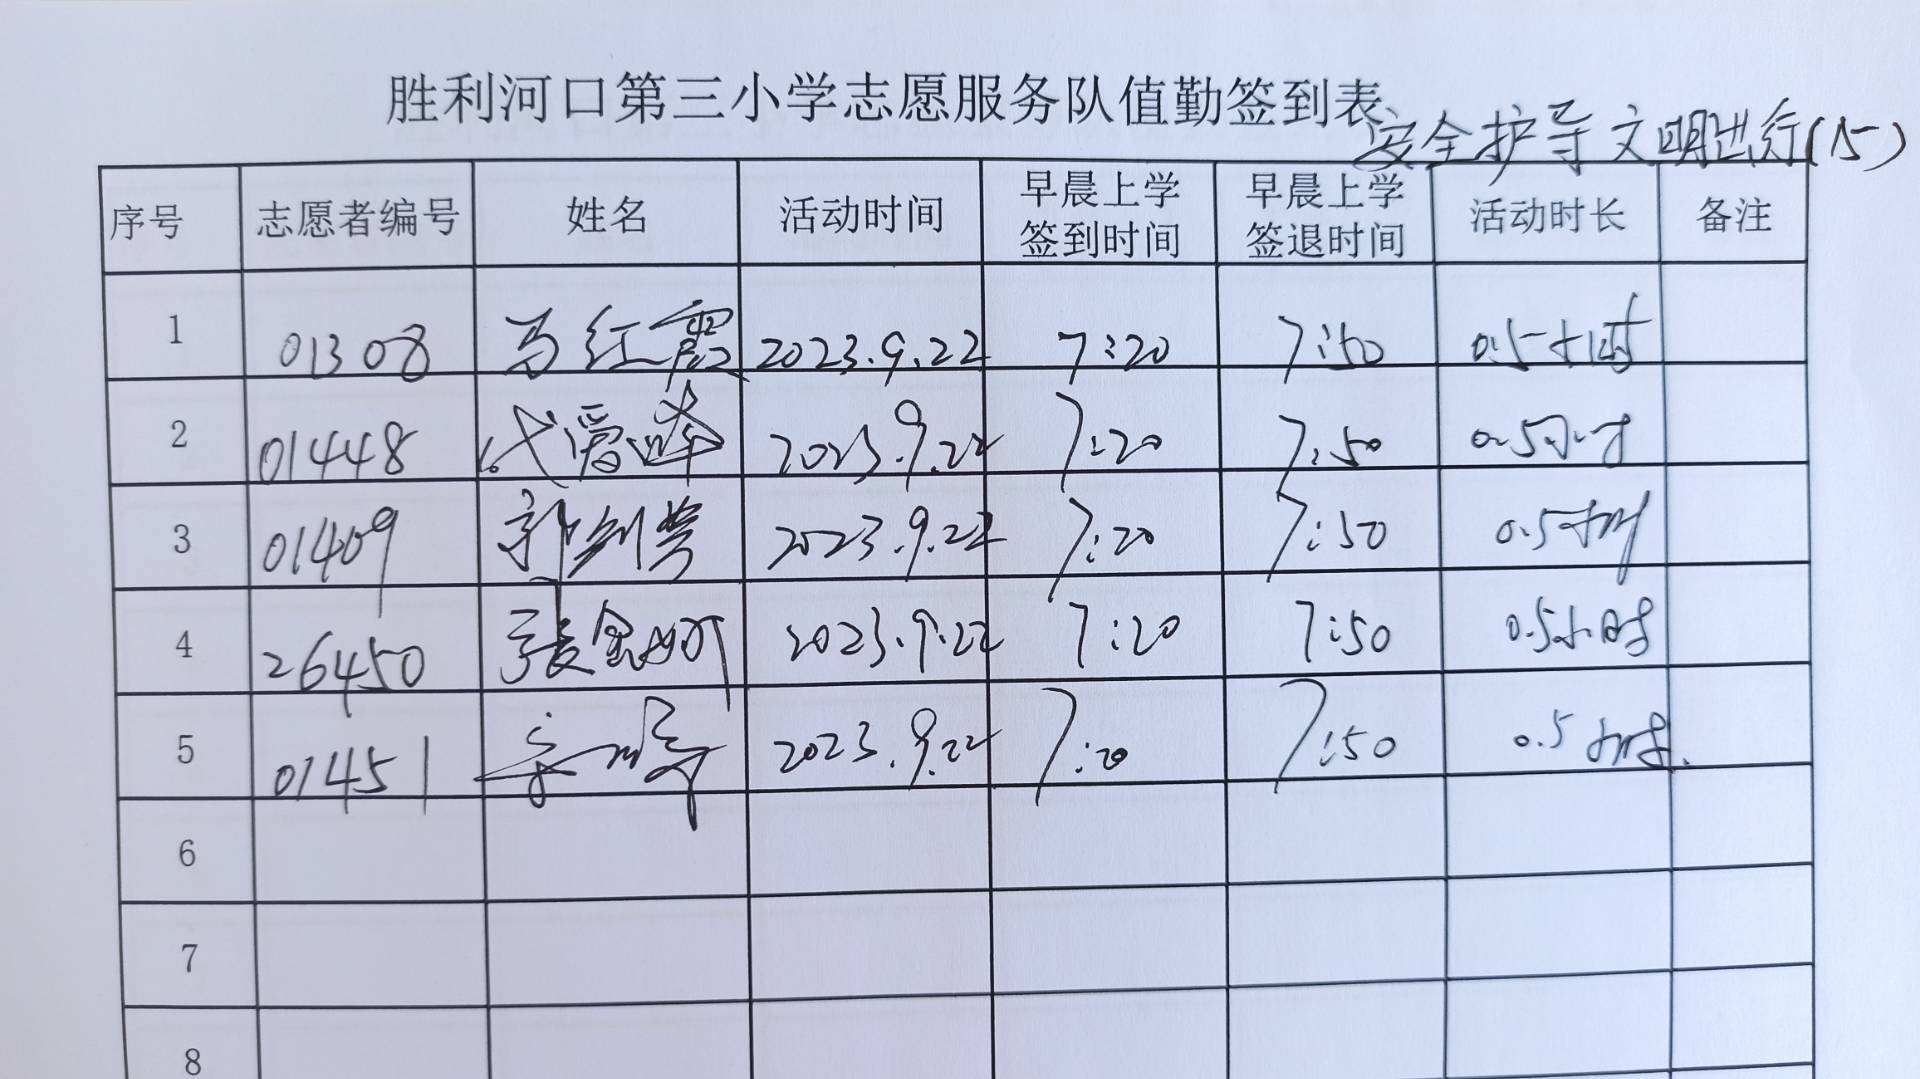 胜利河口第三小学志愿服务队值勤签到表
安全护导 文明进行(15)
序号 志愿者编号 姓名 活动时间 早晨上学签到时间 早晨上学签退时间 活动时长 备注
1 01308 马红霞 2023.9.22 7:20 7:50 0.5小时
2 01448 代爱 2023.9.22 7:20 7:50 0.5小时
3 01409 郭剑 2023.9.22 7:20 7:50 0.5小时
4 26450 张金 2023.9.22 7:20 7:50 0.5小时
5 01451 2023.9.22 7:20 7:50 0.5小时.
6
7
8